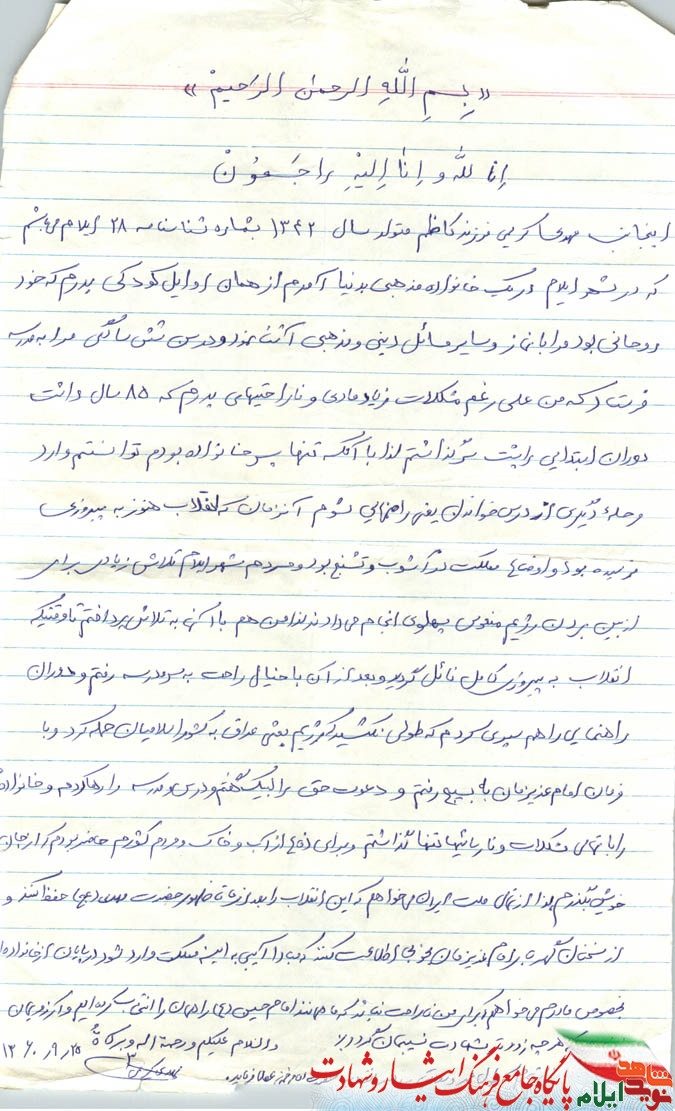 «بِسمِ اللهِ الرحمن الرحیم»
اِنا لله و اِنا اِلیهِ راجَعوُنْ
اینجانب مهدی کرمی فرزند کاظم متولد سال ۱۳۴۲ بشماره شناسنامه ۲۸ ایلام می‌باشم
که در شهر ایلام در یک خانواده مذهبی بدنیا آمدم از همان اوایل کودکی پدرم که خود
روحانی بود مرا با نماز و سایر مسائل دینی و مذهبی آشنا نمود و در سن شش سالگی مرا به مدرسه
فرستاد که من علی رغم مشکلات زیاد مادی و ناراحتیهای پدرم که ۸۵ سال داشت
دوران ابتدایی را پشت سر گذاشتم لذا با آنکه تنها پسر خانواده بودم توانستم وارد
مرحله دیگری از درس خواندن یعنی راهنمایی شوم آنزمان که انقلاب هنوز به پیروزی
نرسیده بود و اوضاع مملکت در آشوب و تشنج بود و مردم شهر ایلام تلاش زیادی برای
از بین بردن رژیم منفوس پهلوی انجام می‌دادند لذا من هم با آنها به تلاش پرداختم تا وقتیکه
انقلاب به پیروزی کامل نائل گردید و بعد از آن با خیال راحت به سر مدرسه رفتم و دوران
راهنمایی را هم سپری کردم که طولی نکشید که رژیم بعثی عراق به کشور اسلامیمان حمله کرد و با
فرمان امام عزیزمان به بسیج رفتم و دعوت حق را لبیک گفتم و درس و مدرسه را رها کردم و خانواده
را با تمامی مشکلات و نارسائیها تنها گذاشتم و برای دفاع از آب و خاک و مردم کشورم حاضر بودم که از جان
خویش بگذرم لذا از تمامی ملت ایران می‌خواهم که این انقلاب را بعد از ما تا ظهور حضرت مهدی (عج) حفظ کنند و
از سخنان گهربار امام عزیزمان بخوبی اطاعت کنند که مبادا آسیبی به این مملکت وارد شود در پایان از خانواده‌ام
بخصوص مادرم می‌خواهم که برای من ناراحت نباشد که ما همانند امام حسین (ع) راهمان را انتخاب کرده ایم و آرزویمان
هر چه زودتر شهادت نصیبمان گردد
والسلام علیکم و رحمة اله و برکاة
۱۳۶۰،۹،۲۵
پایگاه جامع فرهنگ ایثار و شهادت
نوید شاهد ایلام